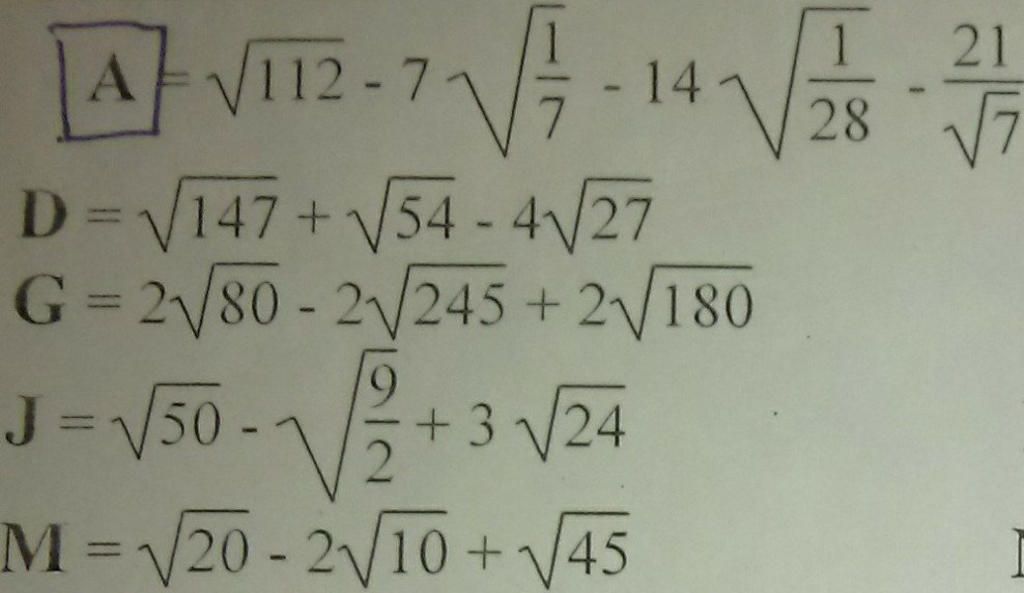 A = √112 - 7 √(1/7) - 14 √(1/28) - 21/√7
D = √147 + √54 - 4√27
G = 2√80 - 2√245 + 2√180
J = √50 - √(9/2) + 3 √24
M = √20 - 2√10 + √45